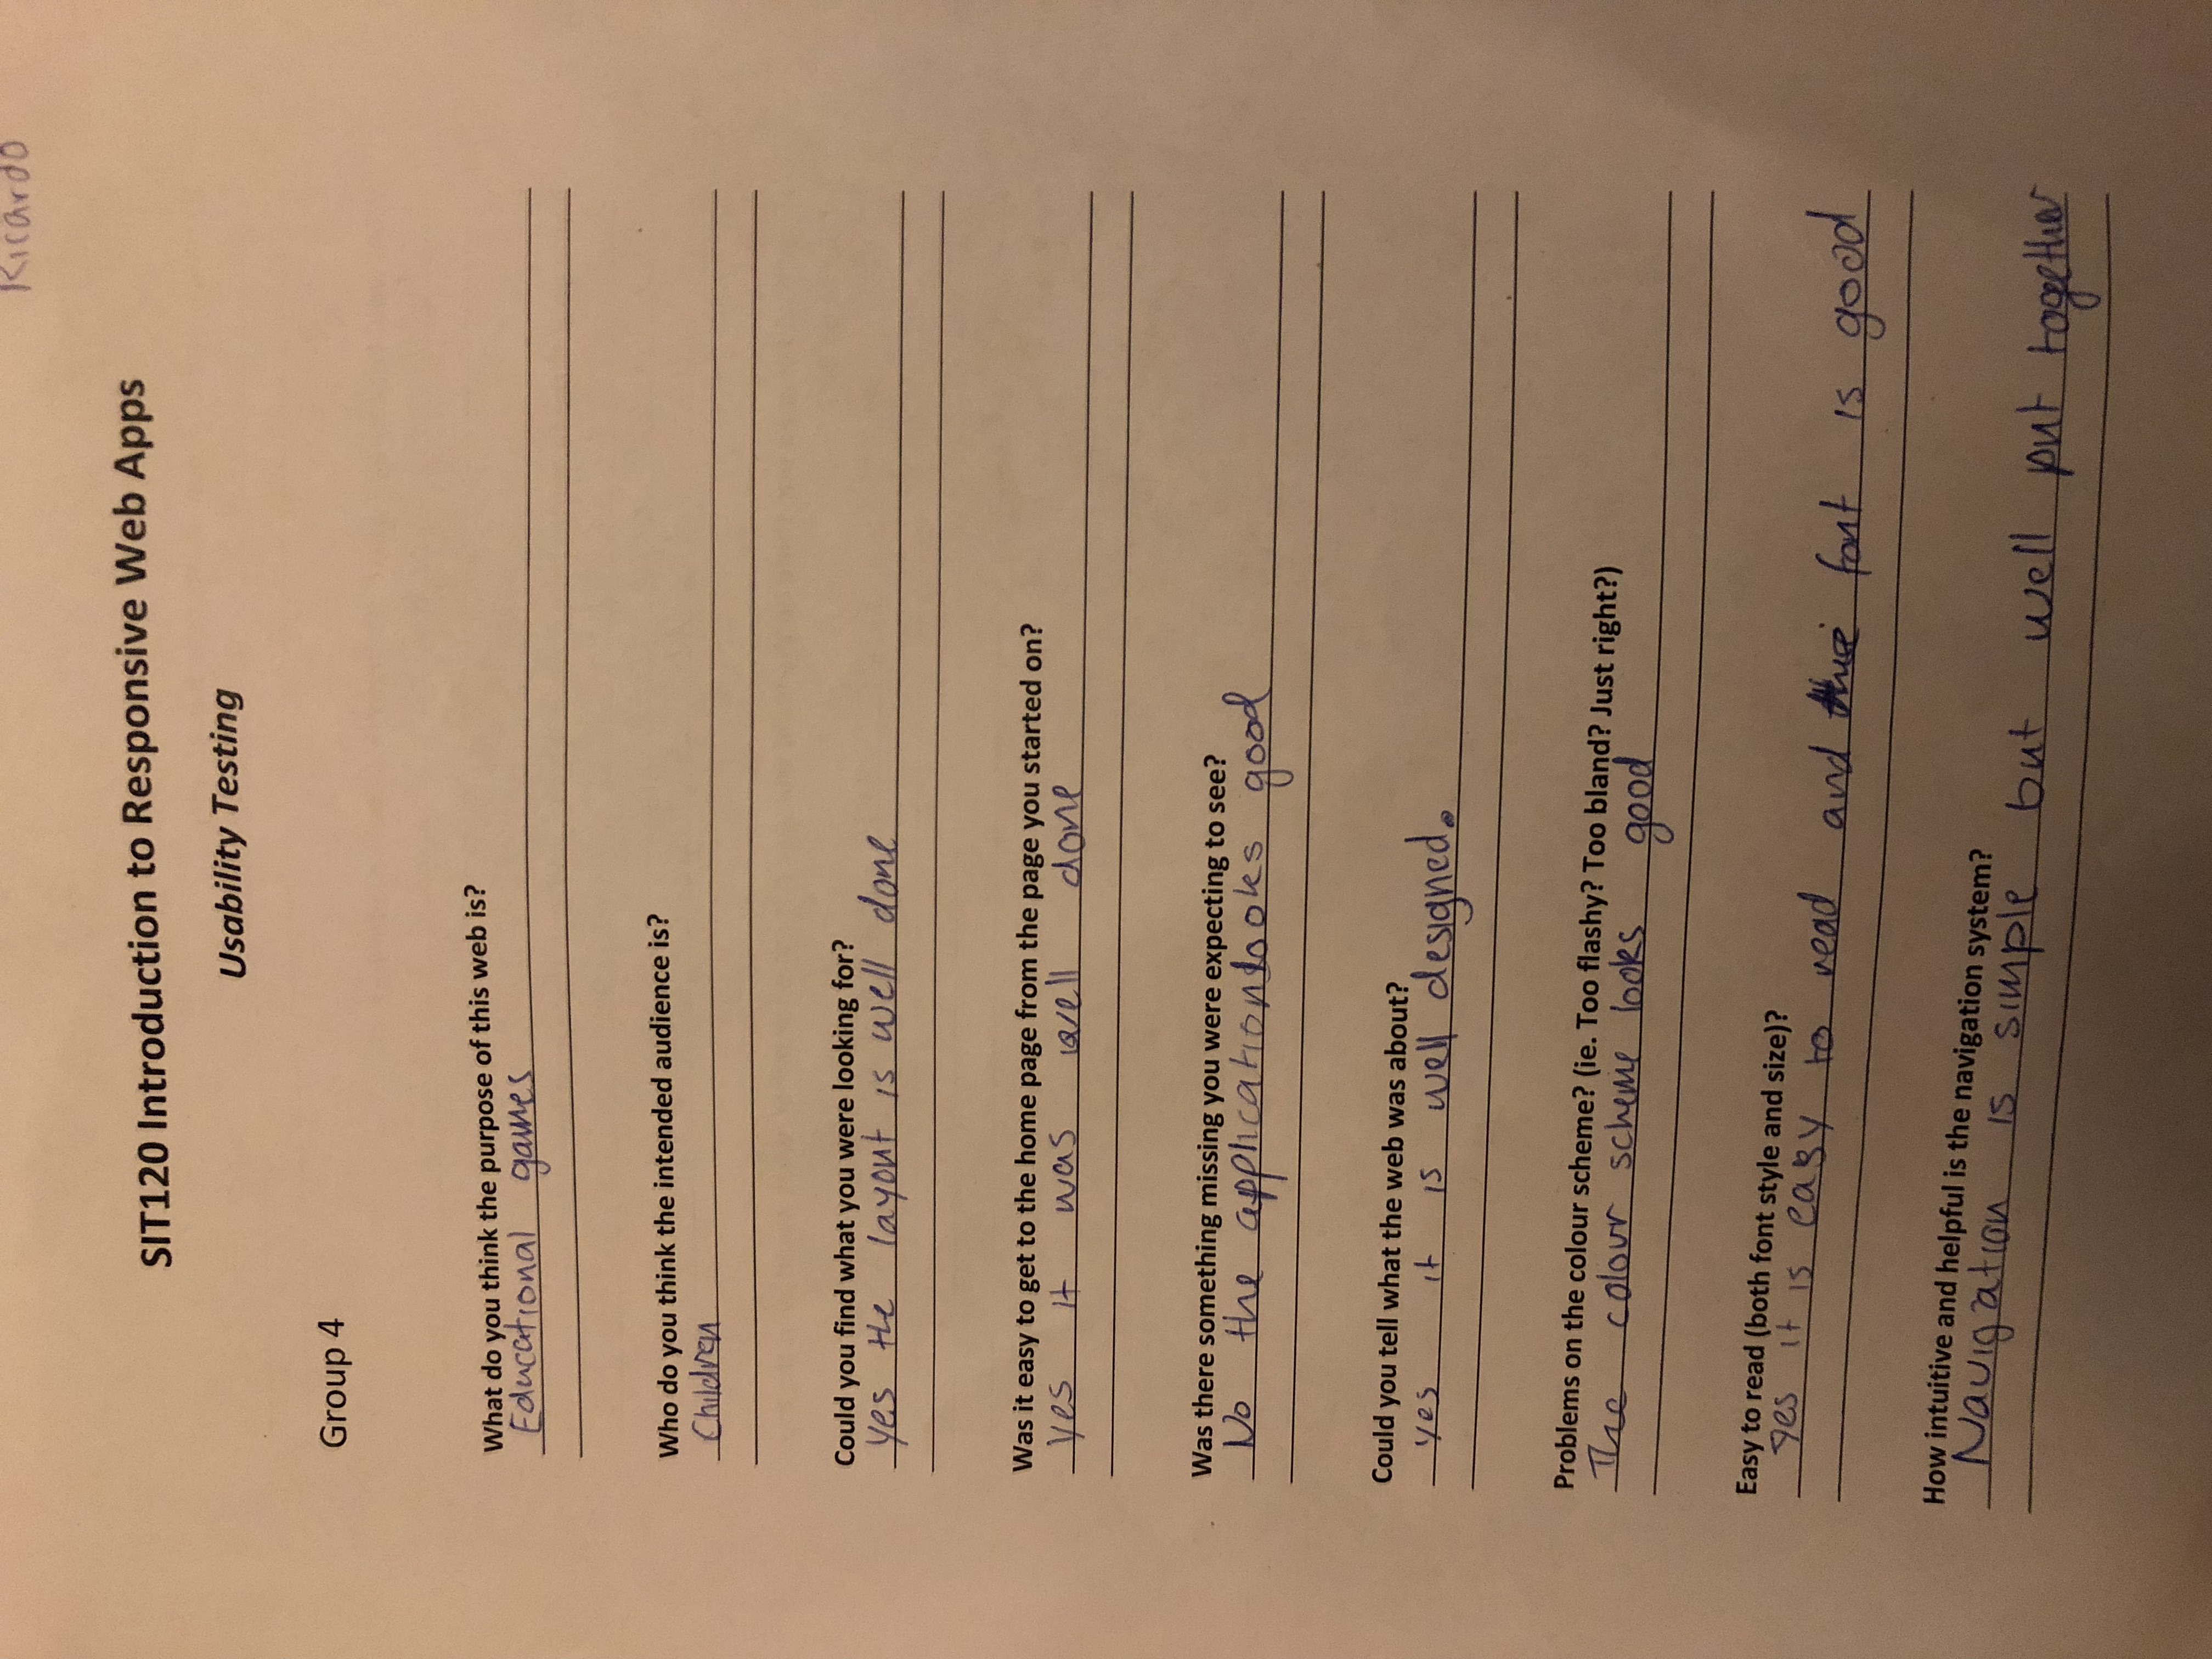 Ricardo
SIT120 Introduction to Responsive Web Apps
Usability Testing
Group 4
What do you think the purpose of this web is?
Educational games
Who do you think the intended audience is?
Children
Could you find what you were looking for?
yes the layout is well done
Was it easy to get to the home page from the page you started on?
yes it was well done
Was there something missing you were expecting to see?
No the application looks good
Could you tell what the web was about?
yes it is well designed.
Problems on the colour scheme? (ie. Too flashy? Too bland? Just right?)
The colour scheme looks good
Easy to read (both font style and size)?
yes it is easy to read and font is good
How intuitive and helpful is the navigation system?
Navigation is simple but well put together